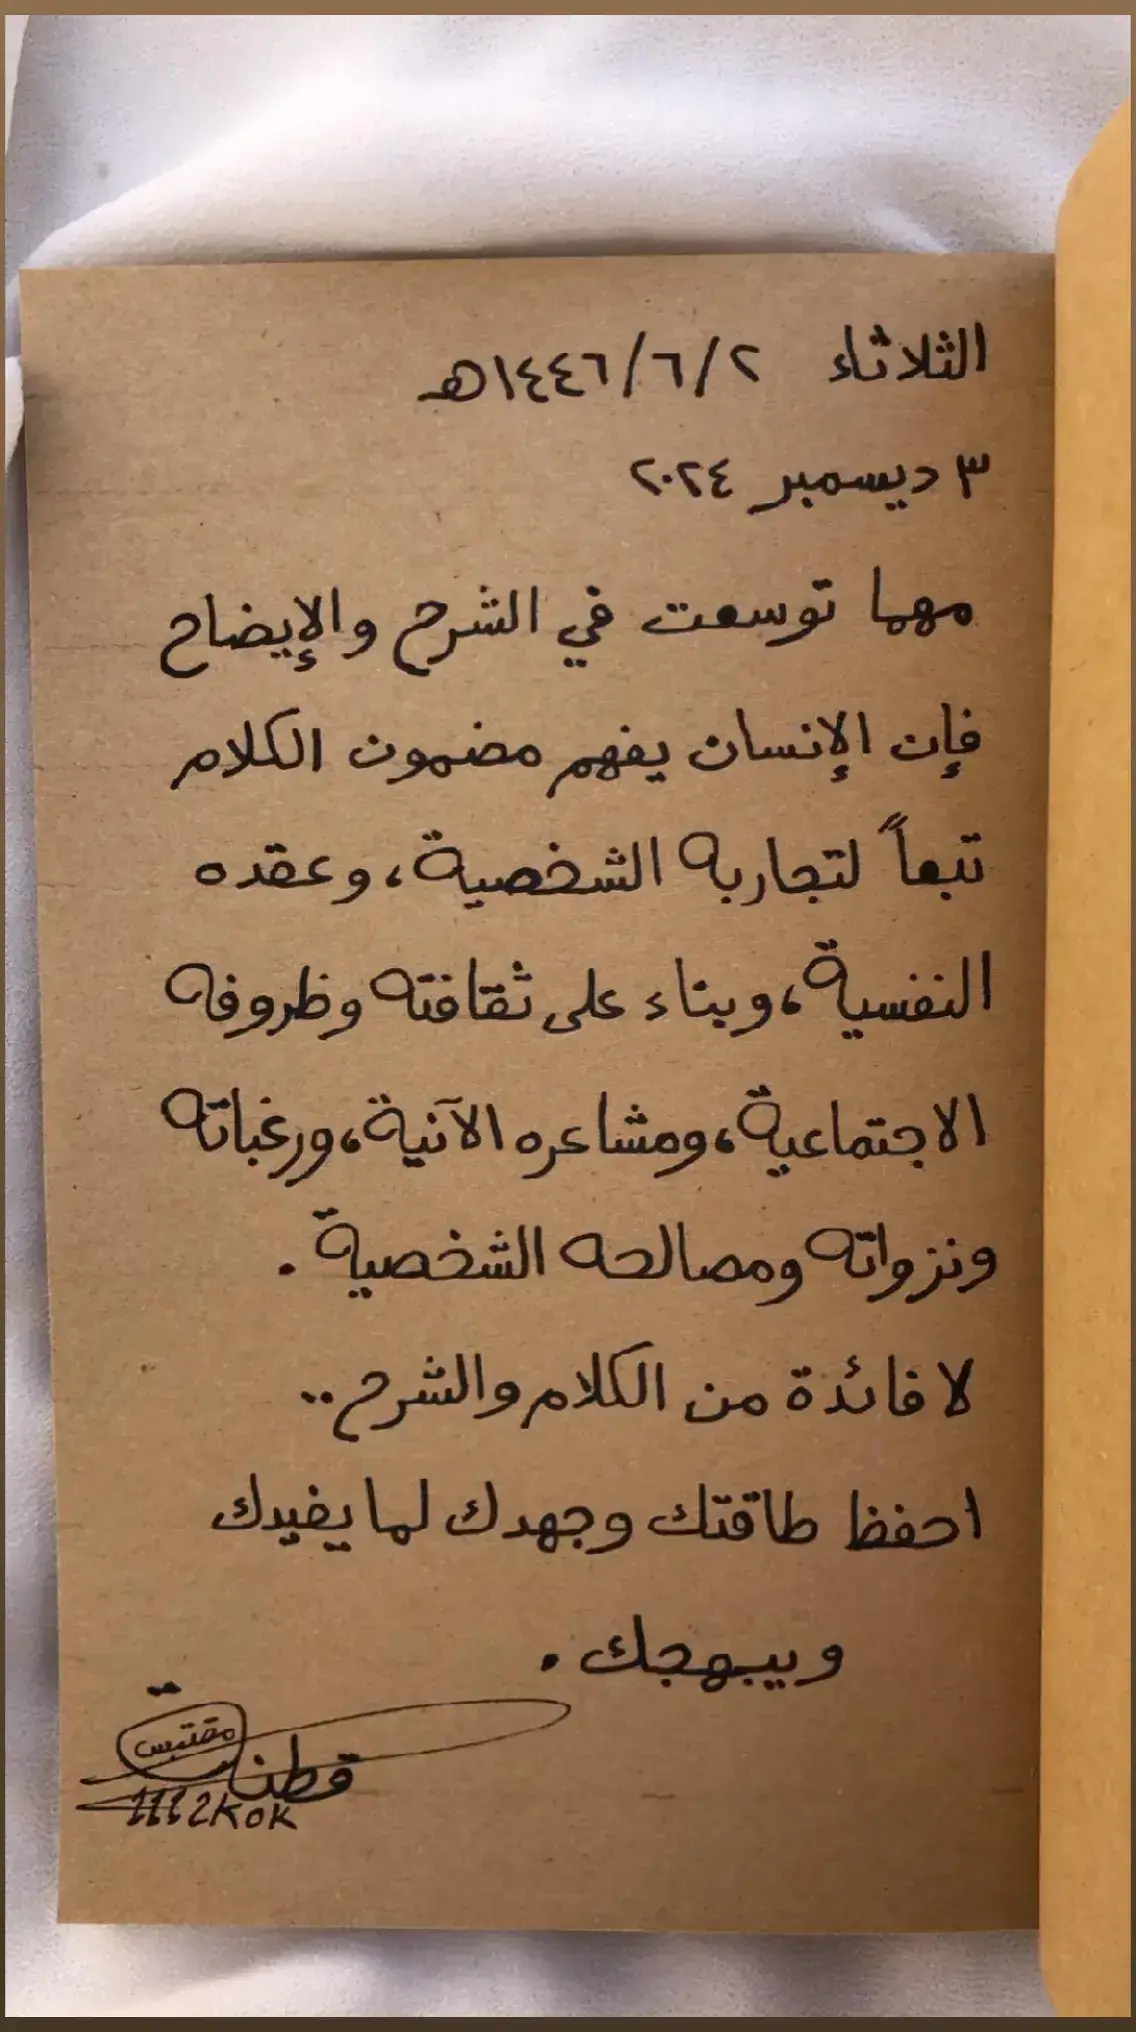 الثلاثاء ٢/٦/١٤٤٦هـ
٣ ديسمبر ٢٠٢٤
مهما توسعت في الشرح والإيضاح
فإن الإنسان يفهم مضمون الكلام
تبعاً لتجاربه الشخصية، وعقده
النفسية، وبناء على ثقافته وظروفه
الاجتماعية، ومشاعره الآنية، ورغباته
ونزواته ومصالحه الشخصية.
لا فائدة من الكلام والشرح..
احفظ طاقتك وجهدك لما يفيدك
ويبهجك.
مقتبس